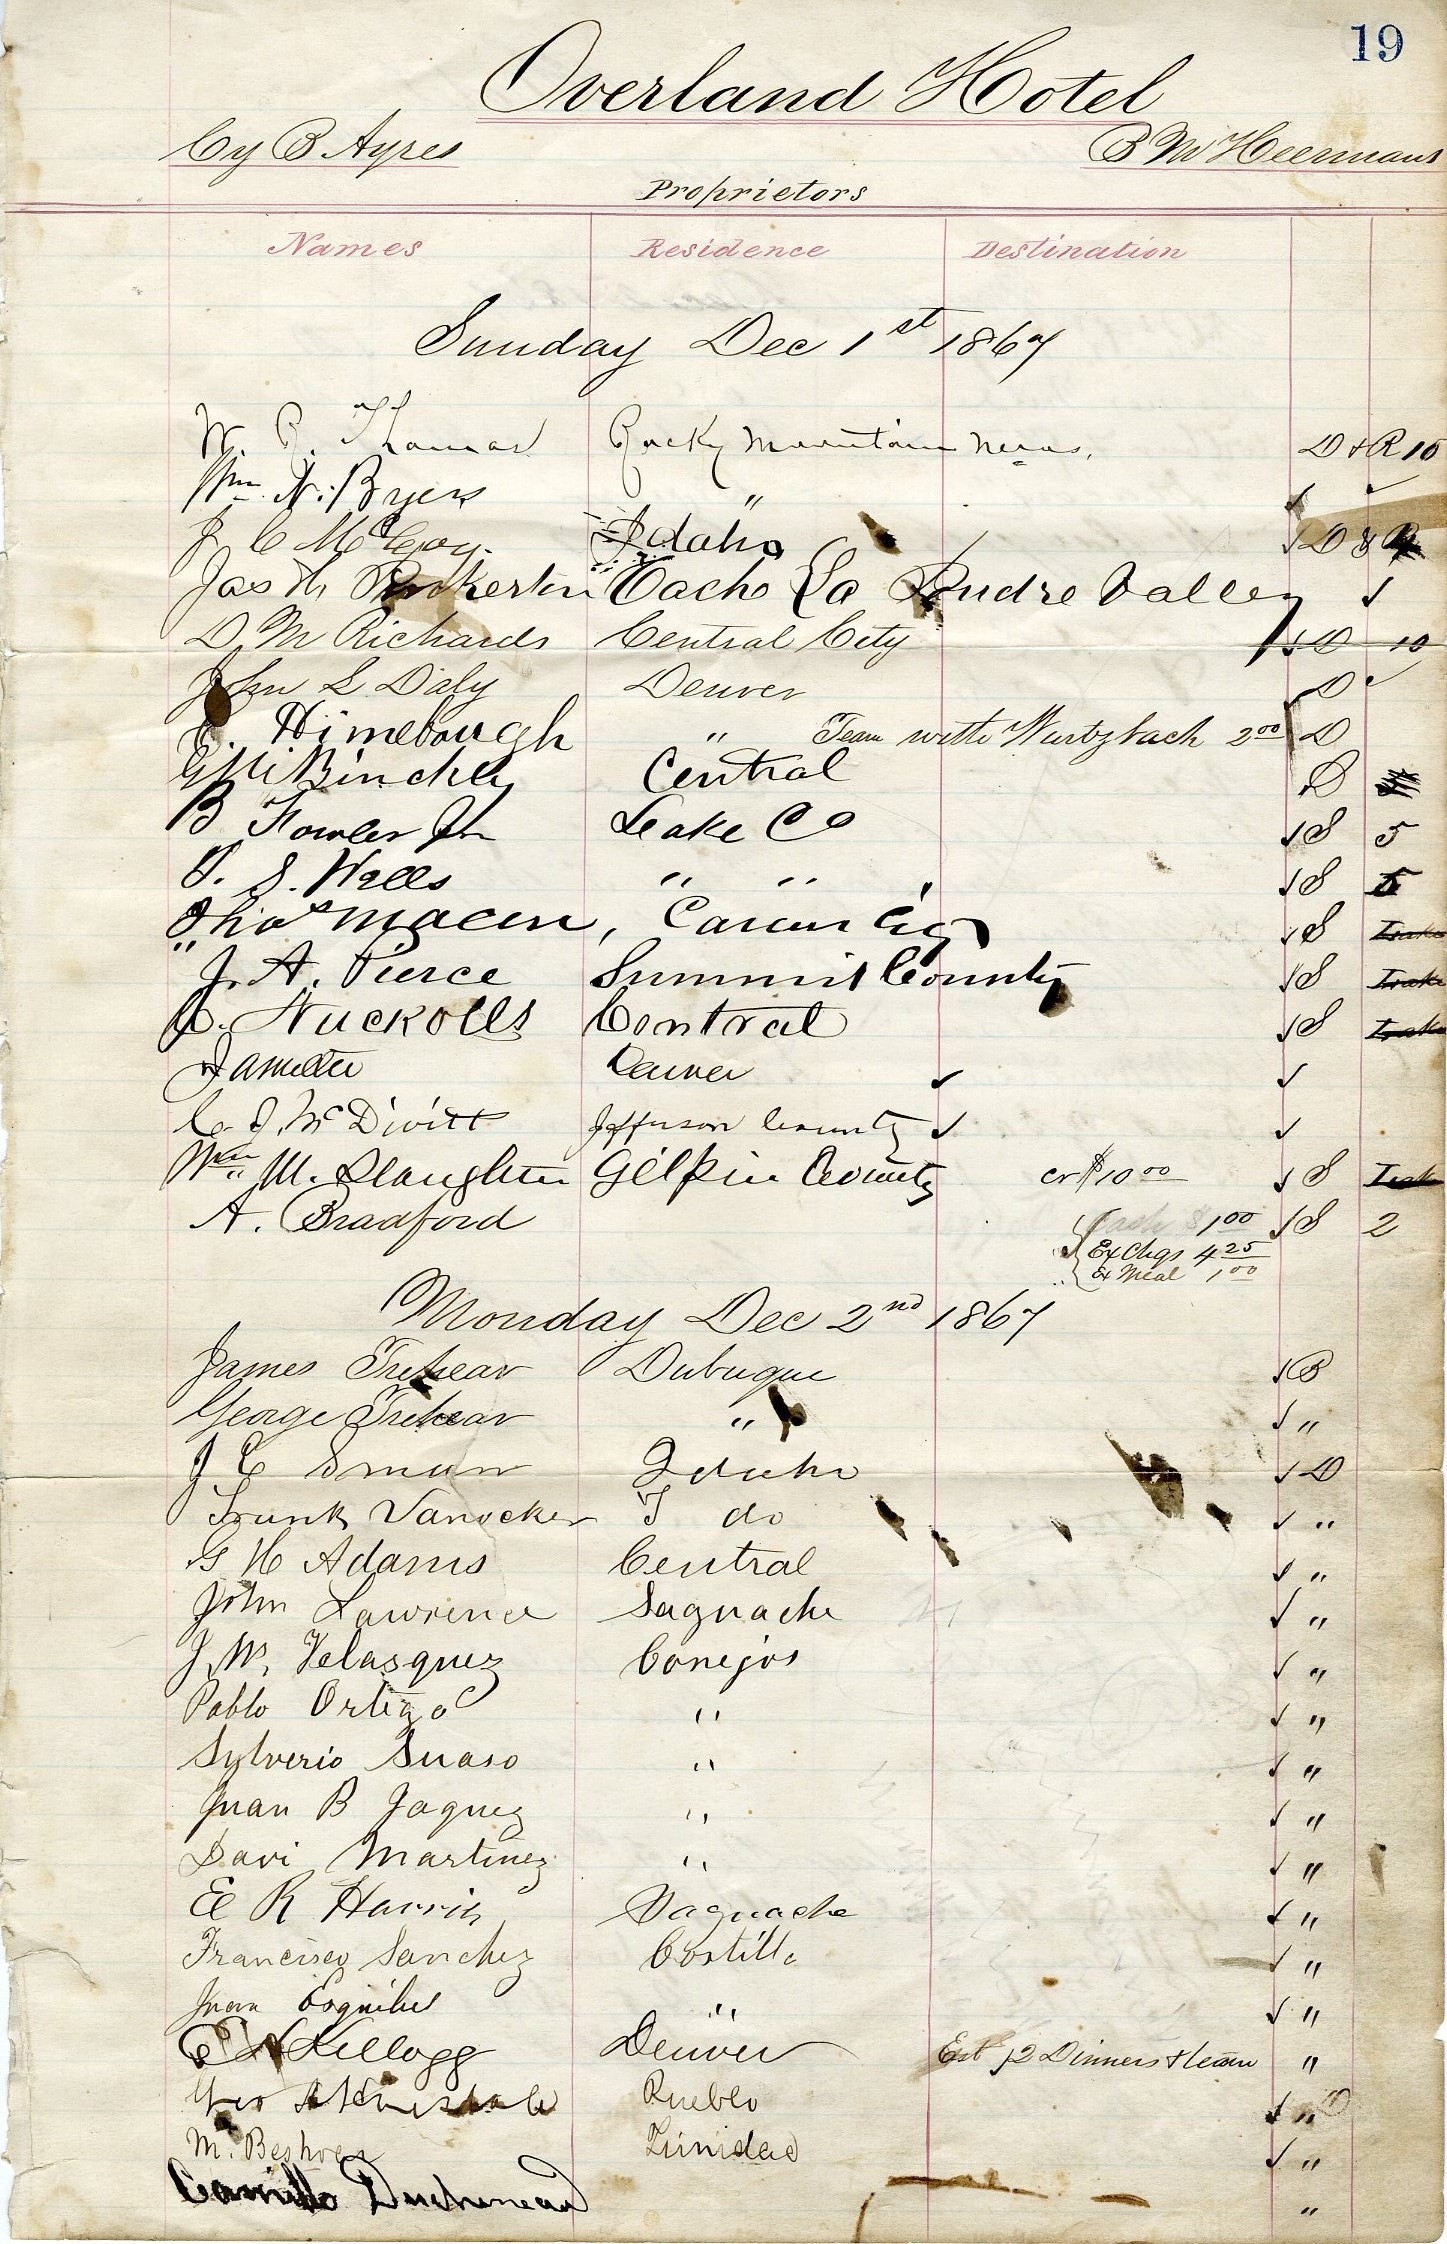 19
Overland Hotel
Cy B Ayres B M Heermans
Proprietors
Names Residence Destination
Sunday Dec 1st 1867
W. R. Thomas Rocky Mountain News. D & R 10
Wm. N. Byers "
J C McCoy. Idaho D & R
Jas H Pinkerton Cache La Poudre Valley
D M Richards Central City D 10
John L Daly Denver D
Himebaugh " Team with Wurtzbach 2 00 D
Binckley Central D
B Fowler Jr Leake Co S 5
S. Wells " " S 5
Thos Macon, Canon City S
J. A. Pierce Summit County S
Nuckolls Central S
Denver
C. J. McDivitt Jefferson County
Wm. M. Slaughter Gilpin County cr $10 00 S
A. Bradford Cash $1 00 S 2
Ex Chgs 4 25
Ex Meal 1 00
Monday Dec 2nd 1867
James Trehear Dubuque B
George Trehear " "
J C Idaho D
Frank Vanocker I do "
G H Adams Central "
John Lawrence Saguache "
J. W. Velasquez Conejos "
Pablo Ortega " "
Sylverio Suaso " "
Juan B Jaquez " "
Davi Martinez " "
E R Harris Saguache "
Francisco Sanchez Costilla "
Juan Esquibel " "
Kellogg Denver 2 Dinners & team "
Geo Pueblo "
M. Beshoar Trinidad "
"